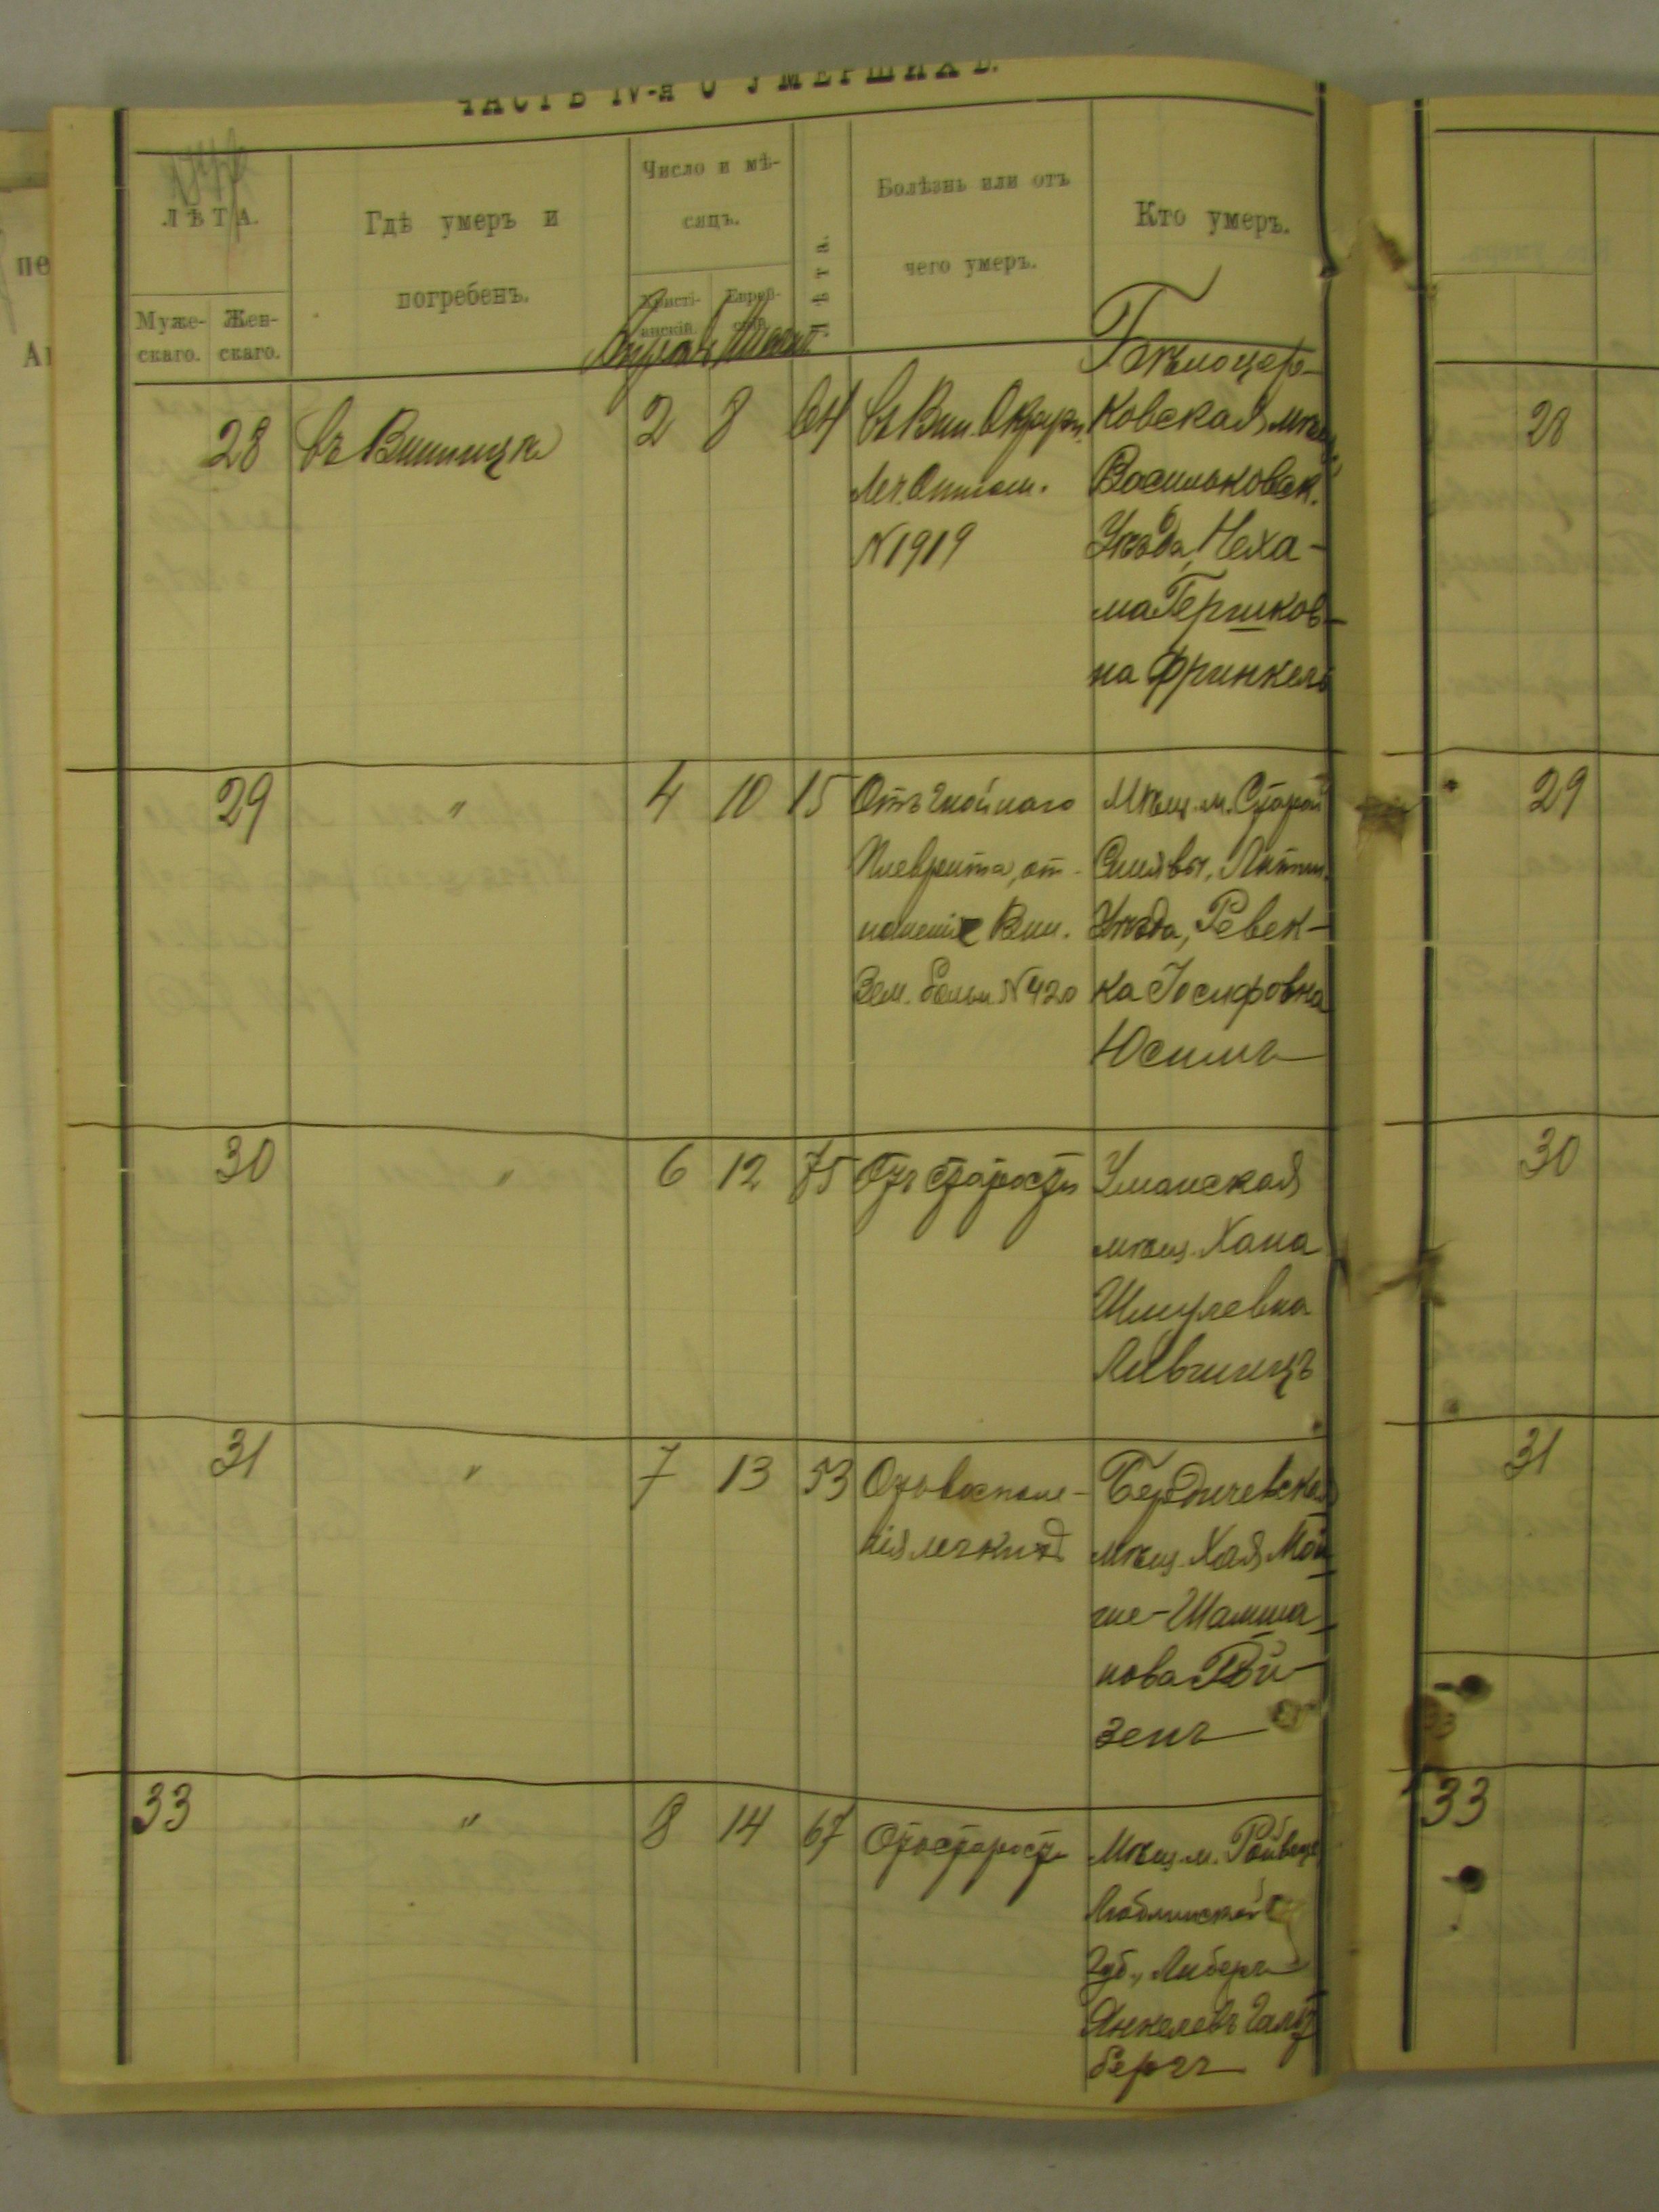 ЧАСТЬ IV-я О УМЕРШИХЪ.
ЛѢТА.
Муже-
скаго.
Жен-
скаго.
Гдѣ умеръ и
погребенъ.
Число и мѣ-
сяцъ.
Христі-
анскій.
Еврей-
скій.
Лѣта.
Болѣзнь или отъ
чего умеръ.
Кто умеръ.
28 въ Винницѣ 2 8 64
въ Вин. Окруж.
Леч.
№1919
Бѣлоцер-
ковская мѣщ.
Васильковск.
Уѣзда, Неха-
ма Гершков-
на Фринкель
29 " 4 10 15
Отъ гнойнаго
Плеврита, от-
ношеніе Вин.
Зем. больн №420
Мѣщ. м. Старой
Синявы, Литин.
Уѣзда, Ревек-
ка Іосифовна
Юсимъ
30 " 6 12 75
Отъ старости
Уманская
мѣщ. Хана
Шмулевна
Лившицъ
31 " 7 13 53
Отъ воспале-
нія легкихъ
Бердичевская
мѣщ. Хая Мой-
ше-Шамша-
нова
зенъ
33 " 8 14 67
Отъ старости
Мѣщ. м.
Люблинской
Губ., Либеръ
Янкелевъ
бергъ
28
29
30
31
33